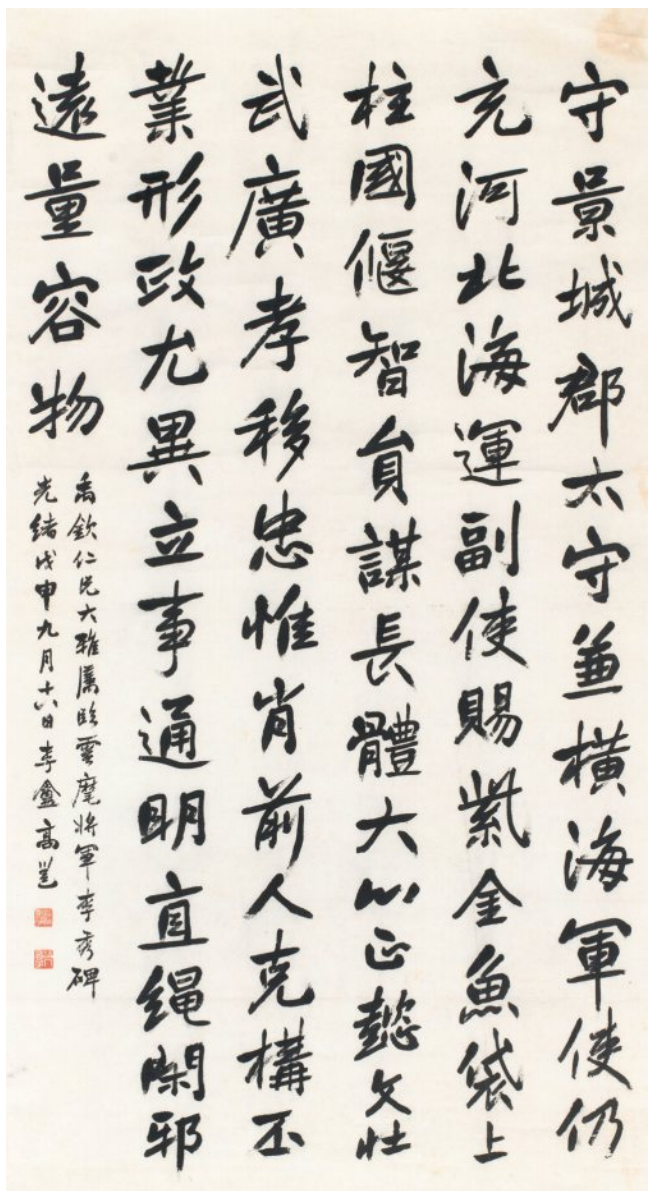 守景城郡太守兼橫海軍使仍
充河北海運副使賜紫金魚袋上
柱國偃智貟謀長體大心正懿文壯
武廣孝移忠惟肖前人克構丕
業形政尤異立事通明直绳閑邪
遠量容物
禹欽仁兄大雅属臨雲麾將軍李秀碑
光緒戊申九月十八日李盦高邕